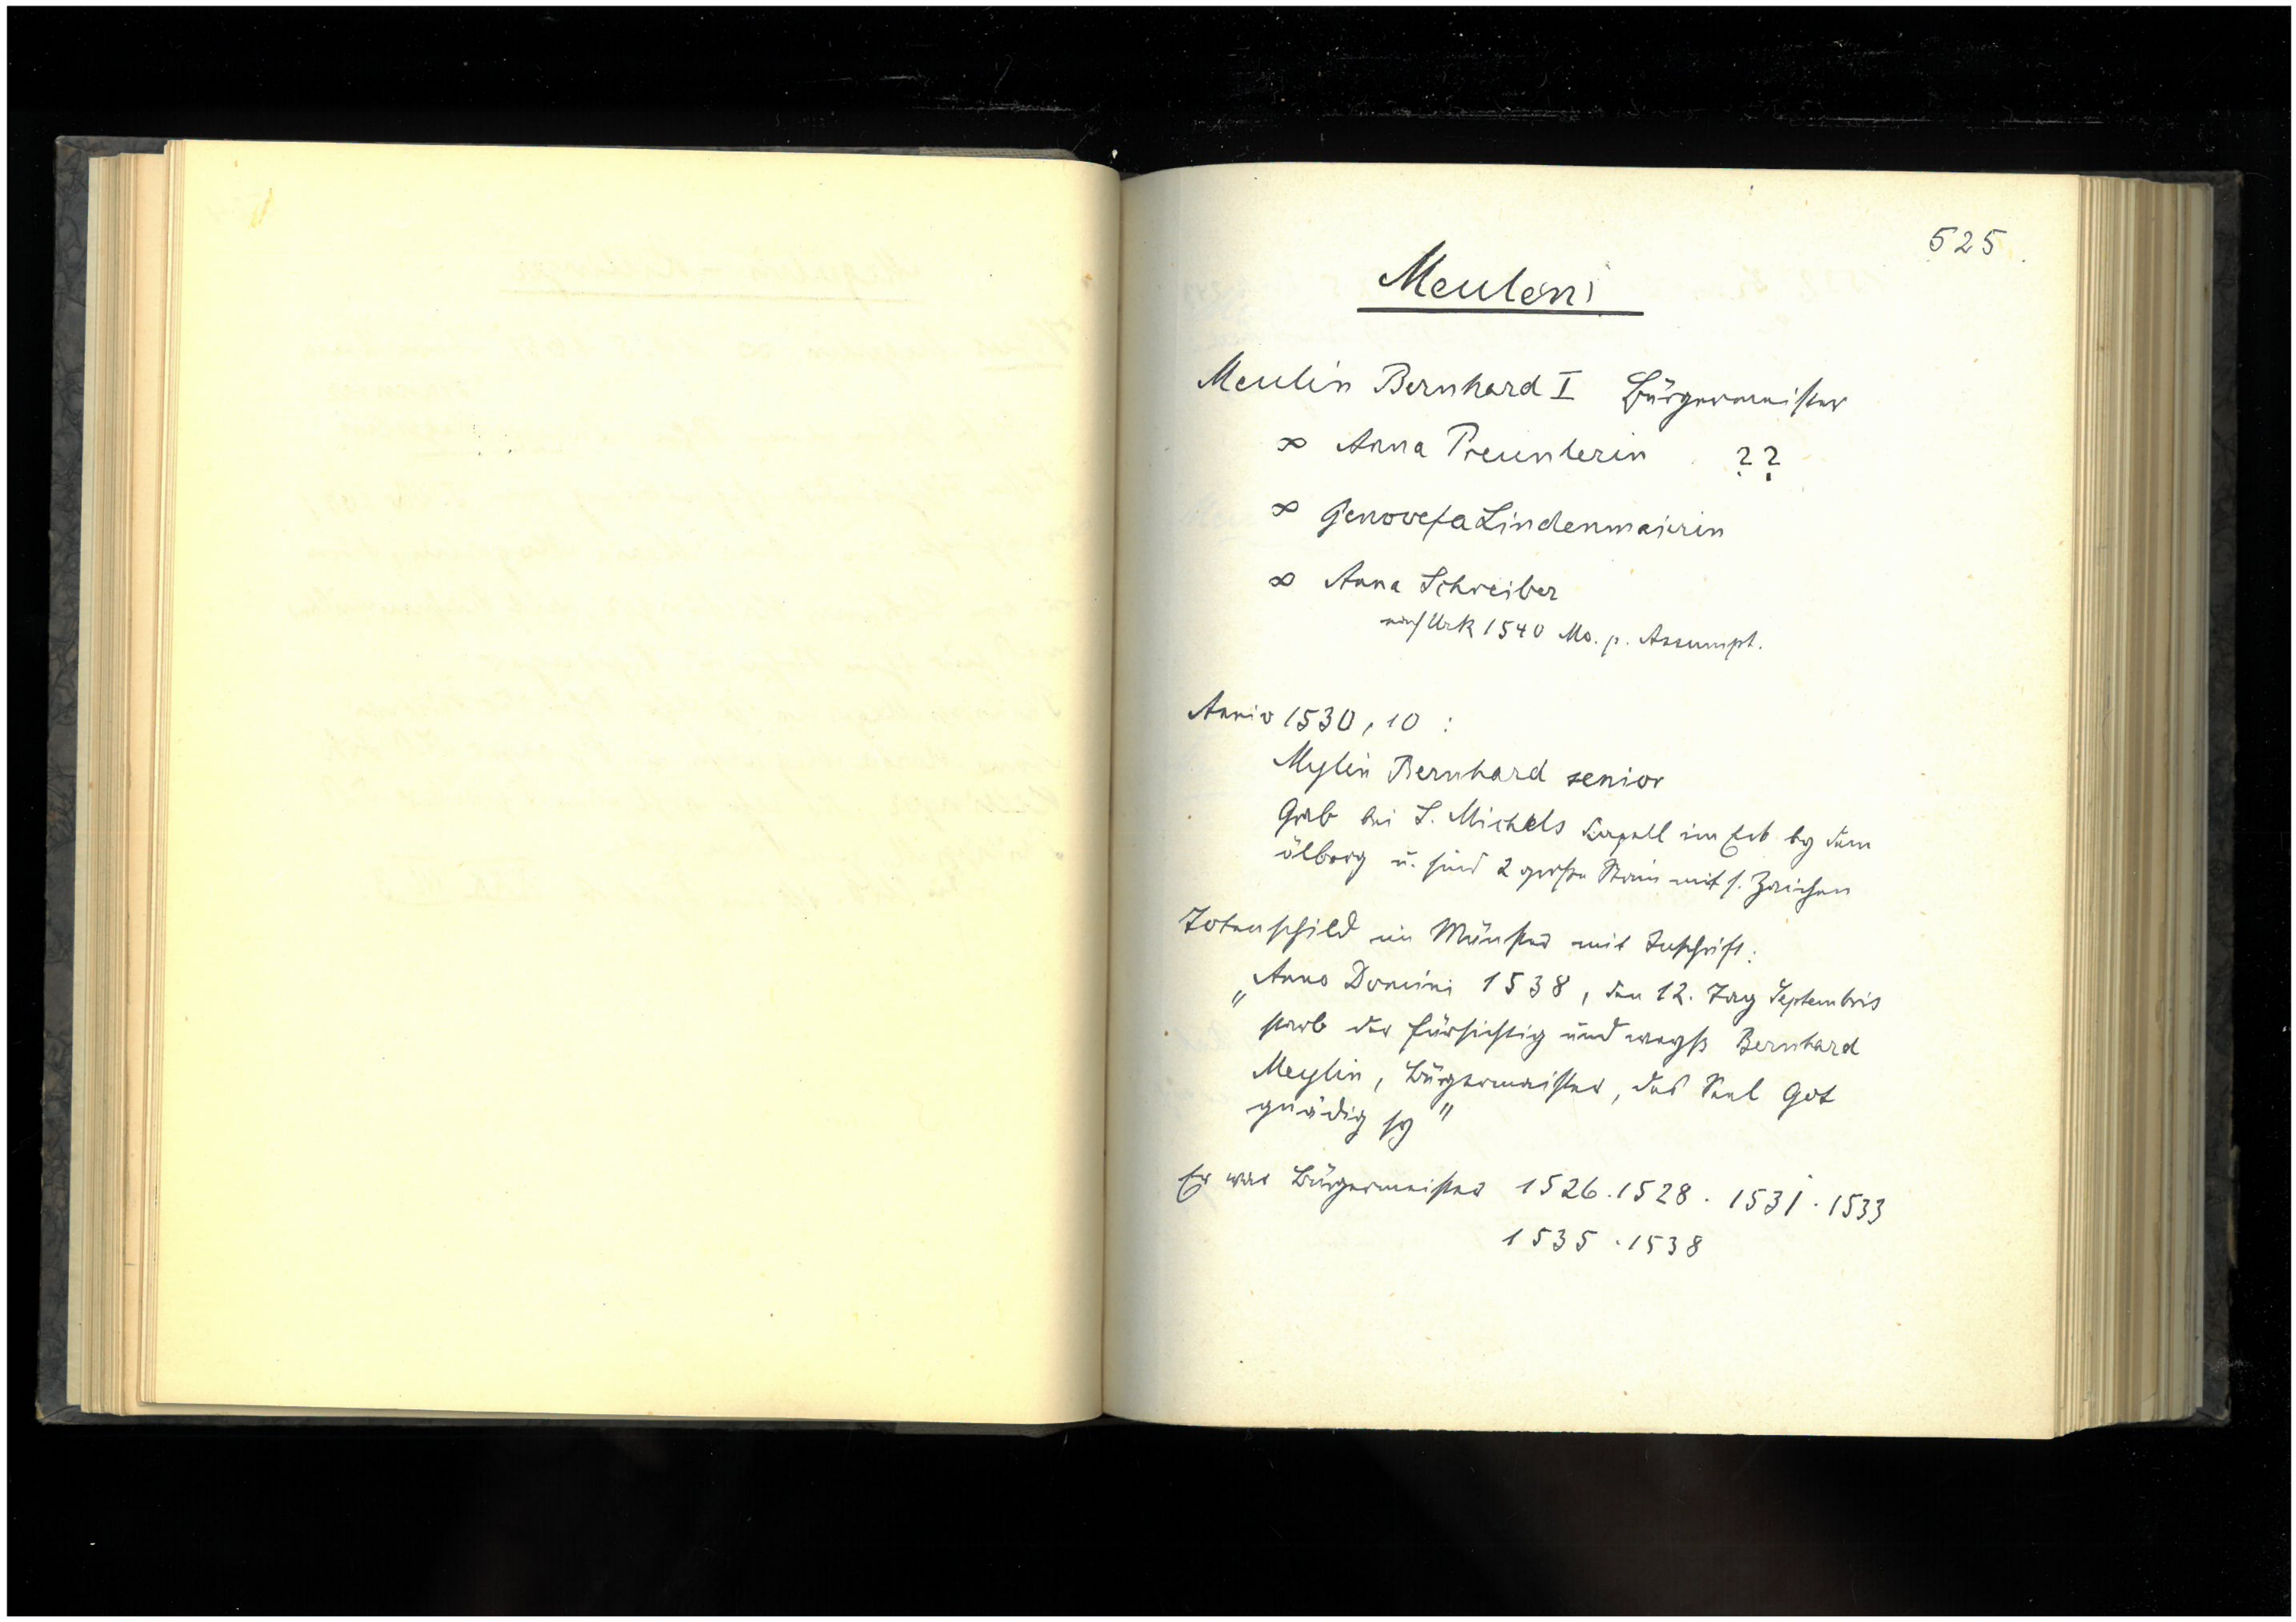 525.
Meulen
Meulin Bernhard I Bürgermeister
∞ Anna Preunlerin ??
∞ Genovefa Lindenmaierin
∞ Anna Schreiber
nach Urk 1540 Mo. p. Assumpt.
Anniv 1530, 10 :
Mylin Bernhard senior
Grab bei S. Michels Kapell im Eck by dem
ölberg u. sind 2 große Stain mit s. Zaichen
Totenschild im Münster mit Inschrift:
„Anno Domini 1538, den 12. Tag Septembris
starb der fürsichtig und weyß Bernhard
Meylin, Bürgermaister, des Seel Got
gnädig sy"
Er war Bürgermeister 1526. 1528. 1531. 1533
1535. 1538